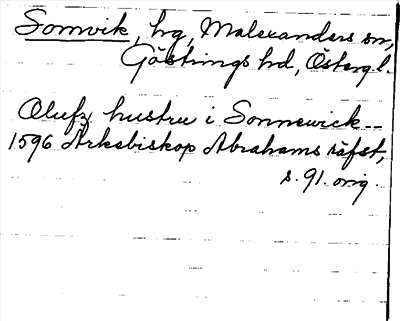 Somvik, hg, Malexanders sn,
Göstrings hd, Östergl.
Olufz hustru i Sonnewick--
1596 Ärkebiskop Abrahams räfst,
s. 91. orig.